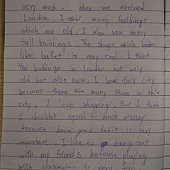 very much. When we arrived
London, I saw many buildings
which are old. I also saw many
tall buildings. The shape which looks
like bullet is very cool. I think
the buildings in London not only
old but also new. I love this city
because there are many store in this
city. I love shopping. But I think
I shouldn't spend to much money
because have good habit is very
important. I like to go hang out
with my friends because playing
with is very